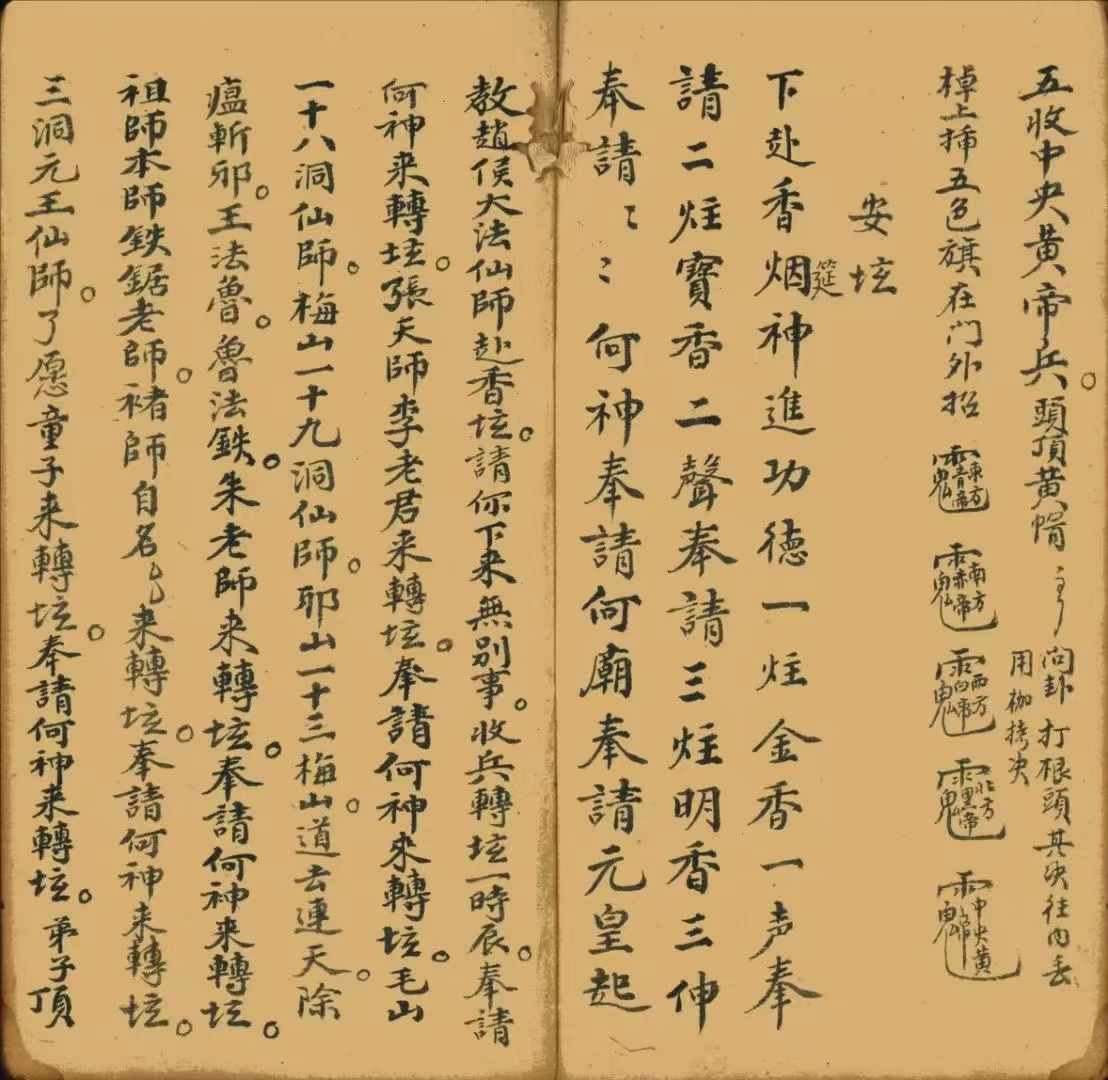 五收中央黄帝兵。頭頂黄帽
问卦 打根頭其决往内丢
用枷拷决
棹上插五色旗在门外招
東方青帝
南方赤帝
西方白帝
北方黑帝
中央黄帝
安坛
下赴香烟筵神進功德一炷金香一声奉
請二炷寳香二聲奉請三炷明香三伸
奉請〻〻何神奉請何廟奉請元皇起
教趙侯大法仙師赴香坛。請你下来無別事。收兵轉坛一時辰。奉請
何神来轉坛。張天師李老君来轉坛。奉請何神来轉坛。毛山
一十八洞仙師。梅山一十九洞仙師。耶山一十三梅山。道去連天。除
瘟斬邪。王法魯。魯法鉄。朱老師来轉坛。奉請何神来轉坛。
祖師本師鉄鋸老師。褚師自名〻来轉坛。奉請何神来轉坛。
三洞元王仙師。了愿童子来轉坛。奉請何神来轉坛。弟子頂